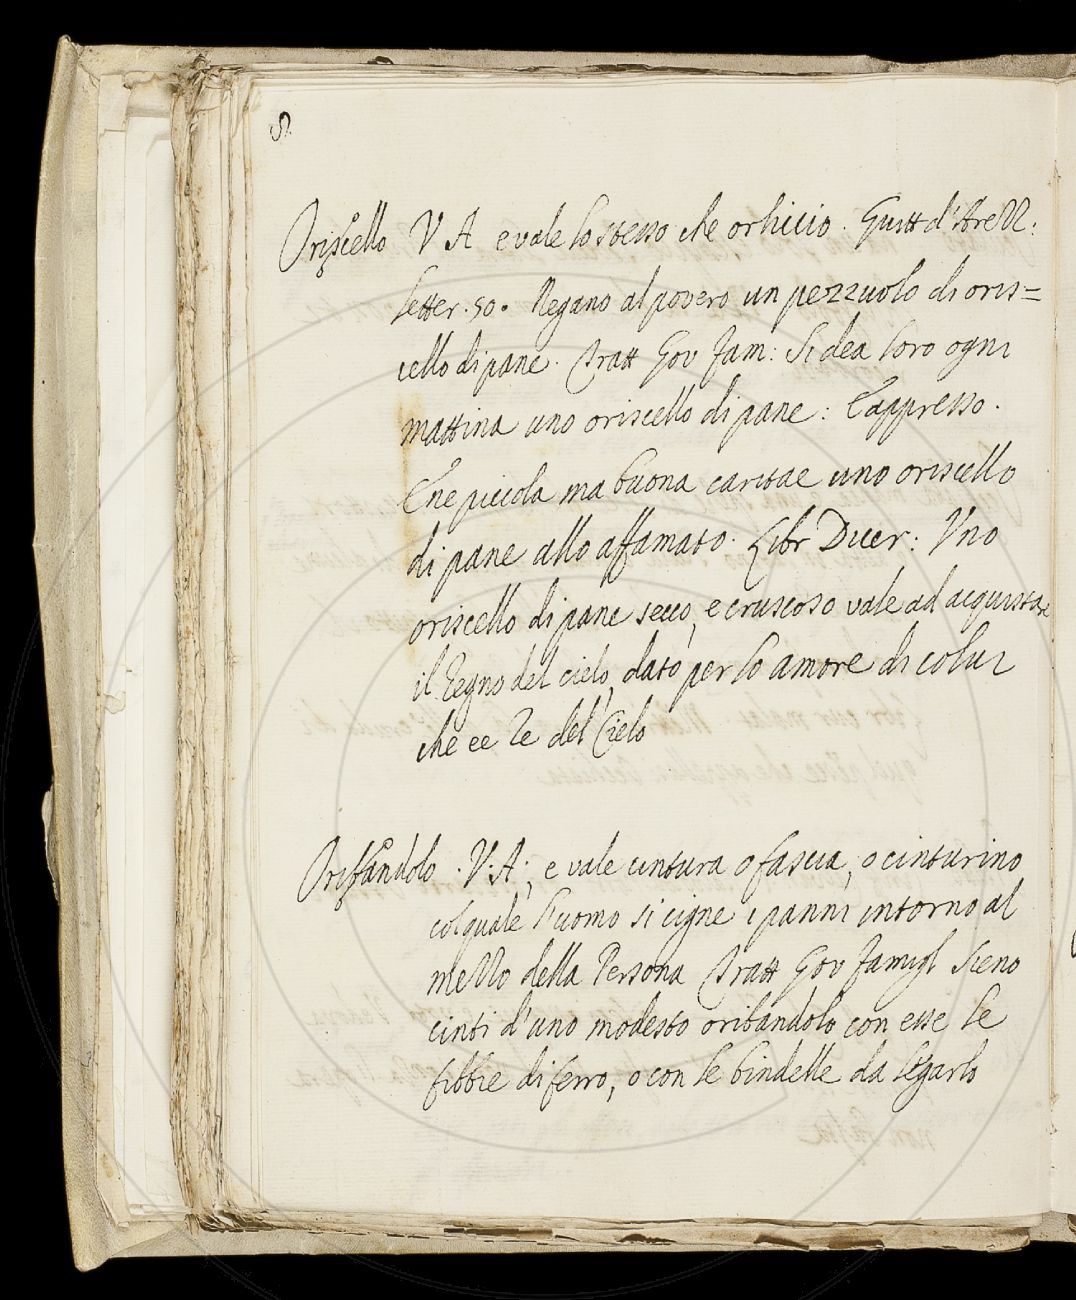 Oriscello V A e vale lo stesso che orlicio. Guitt d'Arezz:
letter. 50. Negano al povero un pezzuolo di oris=
cello di pane. Tratt Gov Fam: Si dea loro ogni
mattina uno oriscello di pane: E appresso.
Ene piccola ma buona caritae uno oriscello
di pane allo affamato. Libr Dicer: Uno
oriscello di pane secco, e cruscoso vale ad acquistare
il Regno del cielo, dato per lo amore di colui
che ee Re del Cielo
Oribandolo. V: A:, e vale cintura o fascia, o cinturino
col quale l'uomo si cigne i panni intorno al
mezzo della Persona Tratt Gov famigl Sieno
cinti d'uno modesto oribandolo con esse le
fibbie di ferro, o con le bindelle da legarlo